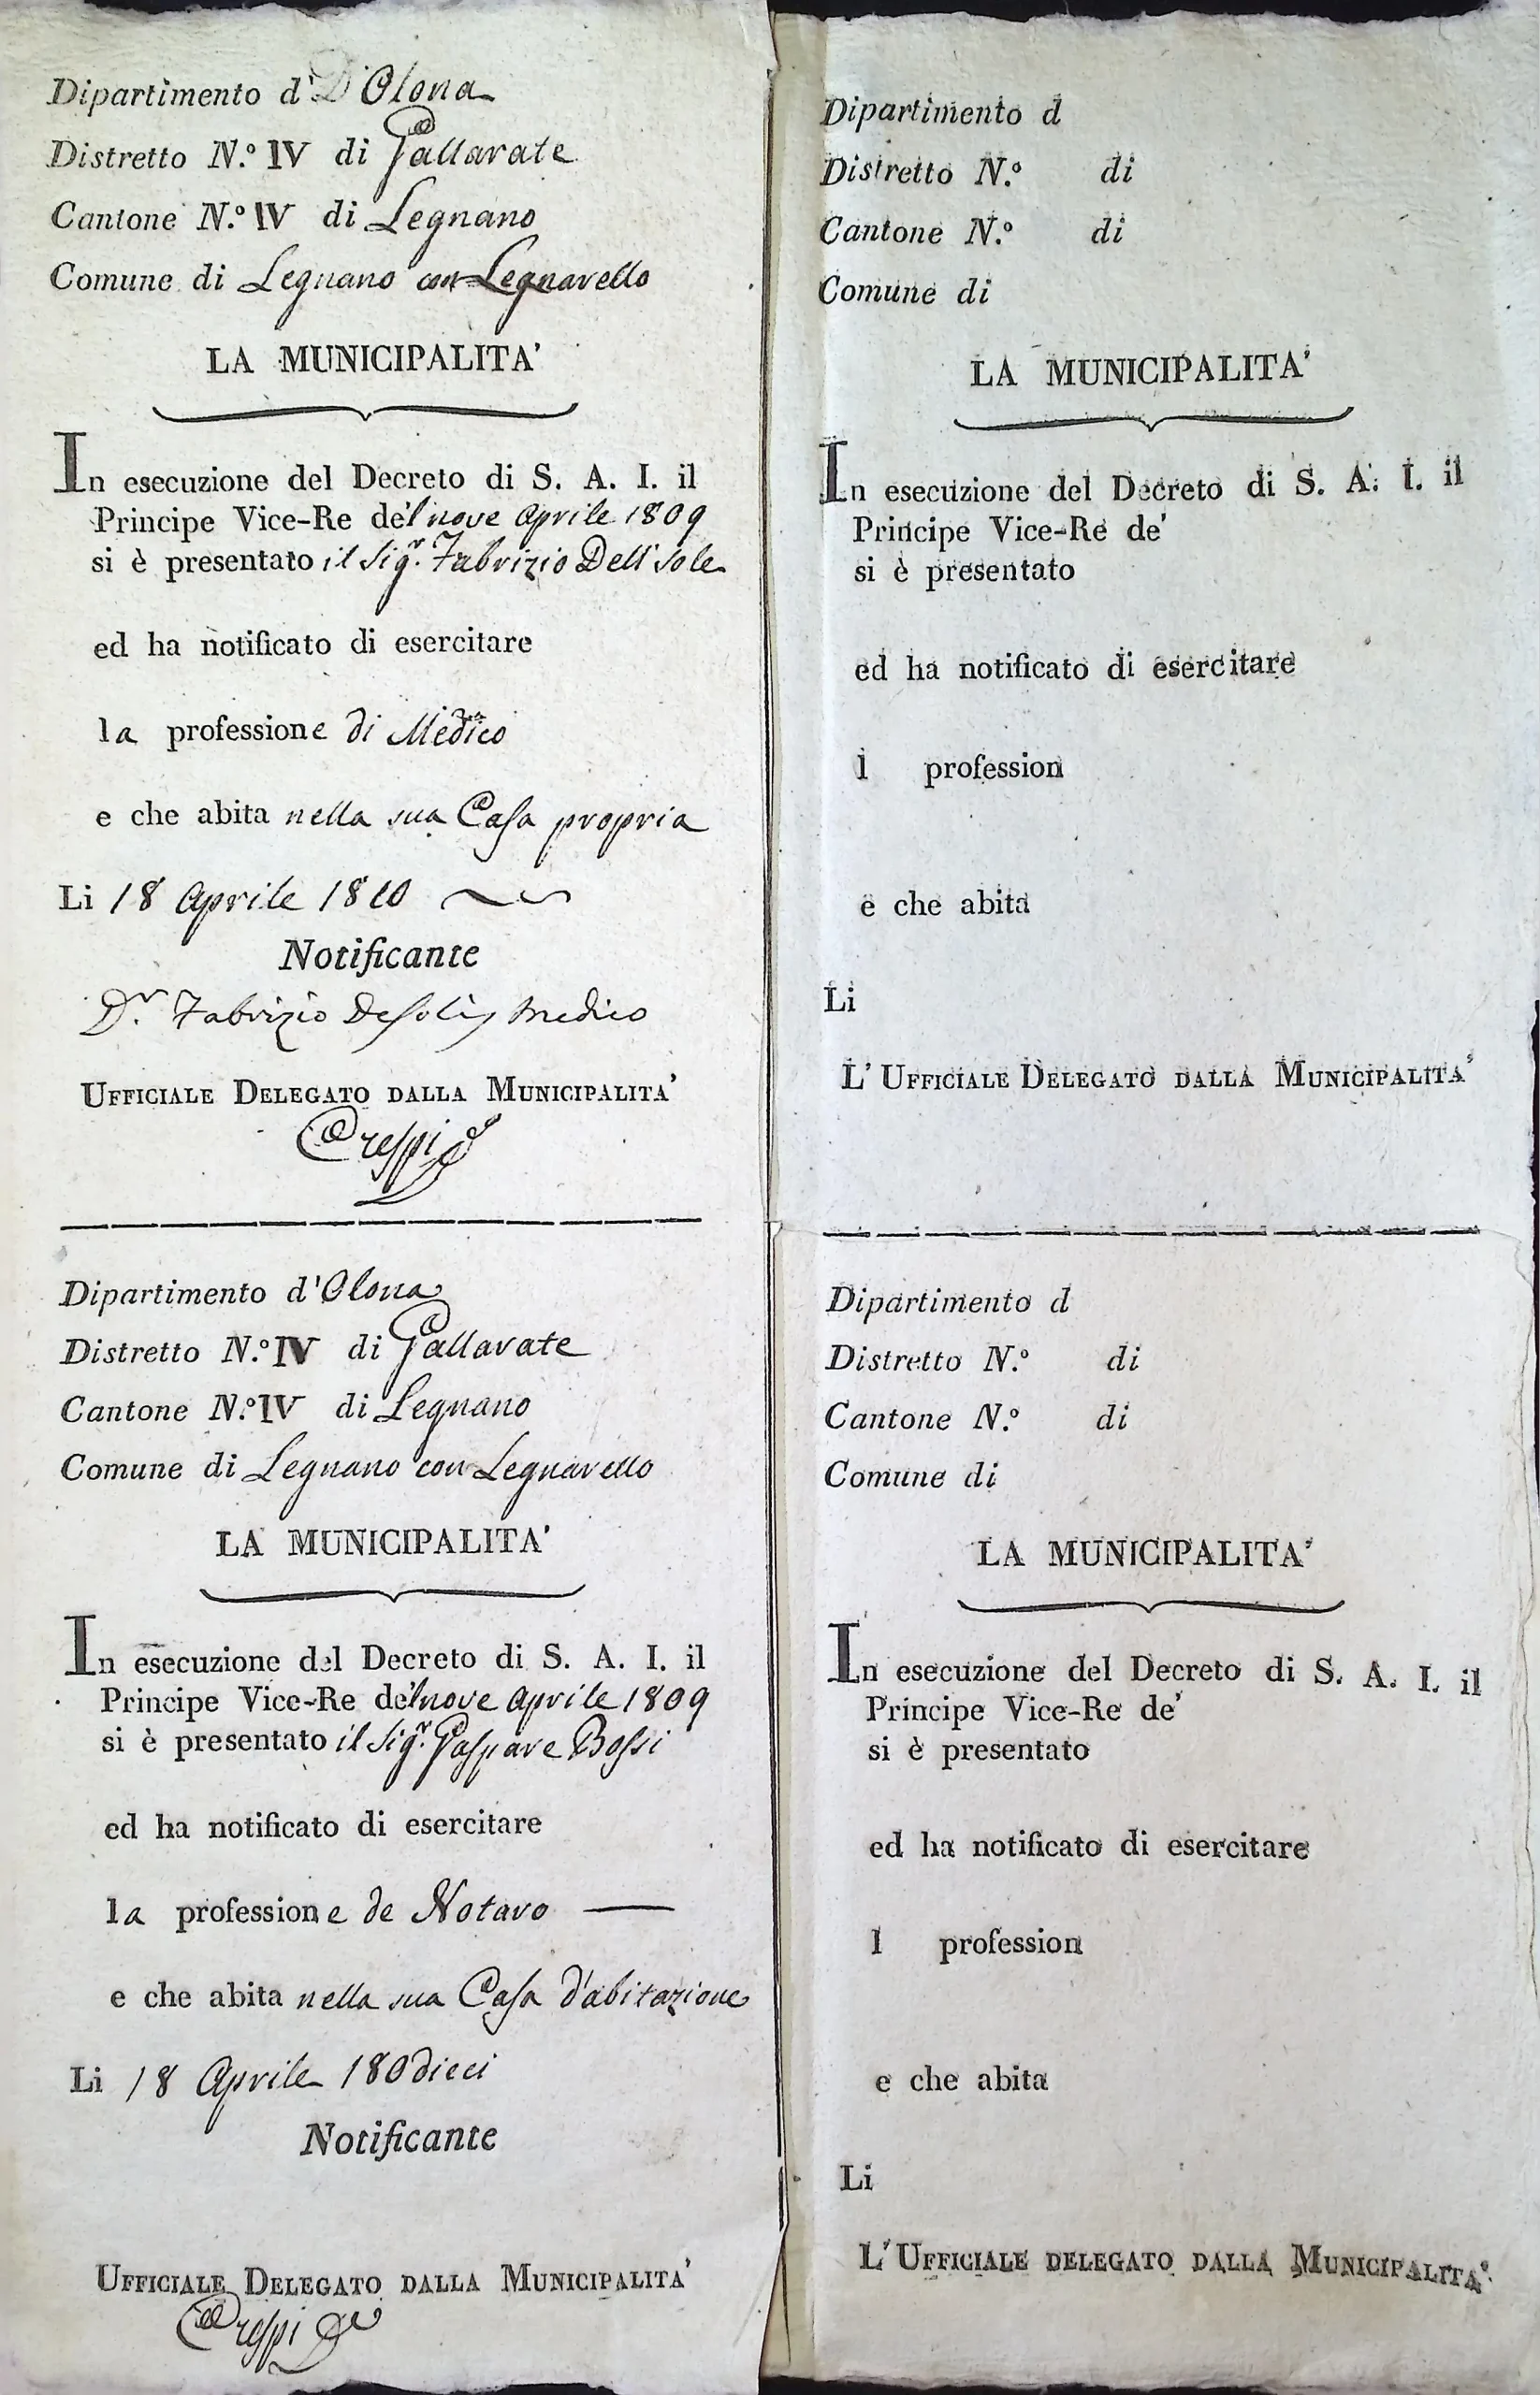 Dipartimento d'Olona
Distretto N.º IV di Gallarate
Cantone N.º IV di Legnano
Comune di Legnano con Legnarello
LA MUNICIPALITA'
In esecuzione del Decreto di S. A. I. il
Principe Vice-Re del nove Aprile 1809
si è presentato il Sigr. Fabrizio Dell'Sole
ed ha notificato di esercitare
la professione di Medico
e che abita nella sua Casa propria
Li 18 Aprile 1810
Notificante
Dr. Fabrizio Desolis Medico
UFFICIALE DELEGATO DALLA MUNICIPALITA'
Crespi
Dipartimento d'Olona
Distretto N.º IV di Gallarate
Cantone N.º IV di Legnano
Comune di Legnano con Legnarello
LA MUNICIPALITA'
In esecuzione del Decreto di S. A. I. il
Principe Vice-Re del nove Aprile 1809
si è presentato il Sigr. Gaspare Bossi
ed ha notificato di esercitare
la professione de Notaro
e che abita nella sua Casa d'abitazione
Li 18 Aprile 180dieci
Notificante
UFFICIALE DELEGATO DALLA MUNICIPALITA'
Crespi
Dipartimento d
Distretto N.º di
Cantone N.º di
Comune di
LA MUNICIPALITA'
In esecuzione del Decreto di S. A. I. il
Principe Vice-Re de'
si è presentato
ed ha notificato di esercitare
l profession
e che abita
Li
L'UFFICIALE DELEGATO DALLA MUNICIPALITA'
Dipartimento d
Distretto N.º di
Cantone N.º di
Comune di
LA MUNICIPALITA'
In esecuzione del Decreto di S. A. I. il
Principe Vice-Re de'
si è presentato
ed ha notificato di esercitare
l profession
e che abita
Li
L'UFFICIALE DELEGATO DALLA MUNICIPALITA'